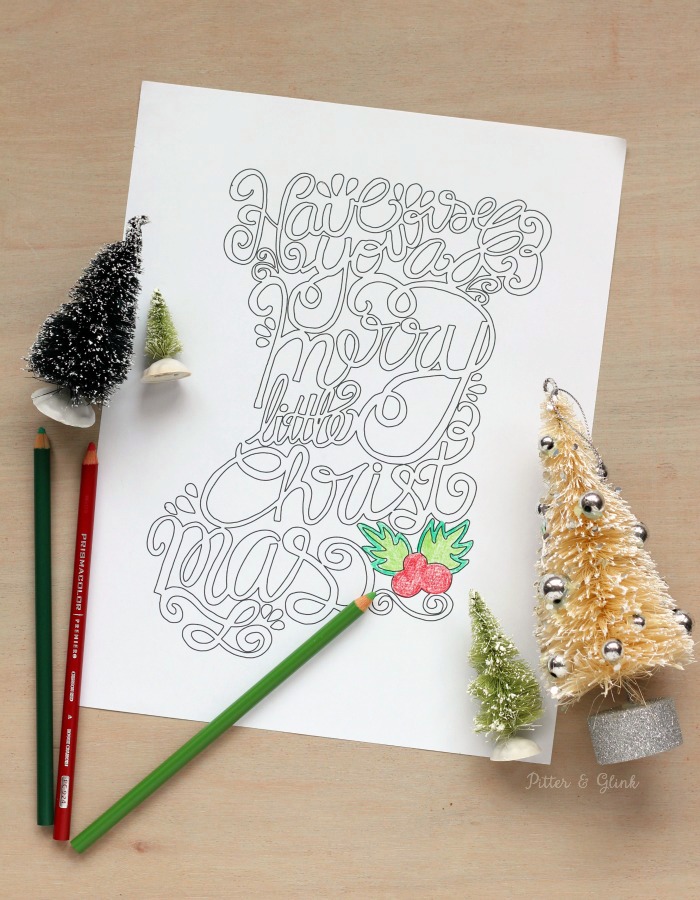 Have
yourself
a
merry
little
Christ
mas
PRISMACOLOR | PREMIER
Pitter & Glink